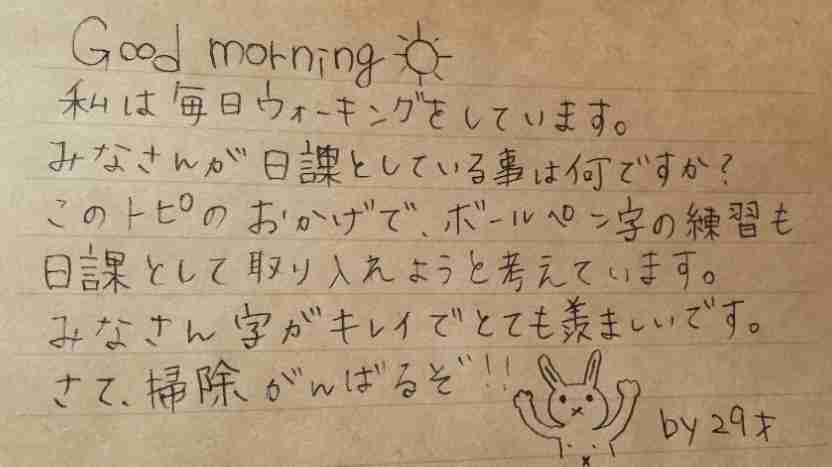 Good morning
私は毎日ウォーキングをしています。
みなさんが日課としている事は何ですか?
このトピのおかげで、ボールペン字の練習も
日課として取り入れようと考えています。
みなさん字がキレイでとても羨ましいです。
さて、掃除がんばるぞ!!
by 29才